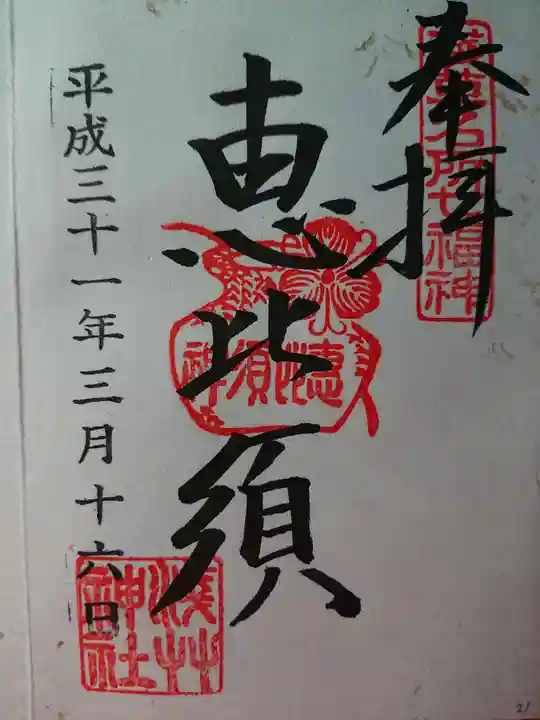 奉拝
浅草名所七福神
恵比須
恵比須神
平成三十一年三月十六日
浅草神社
21